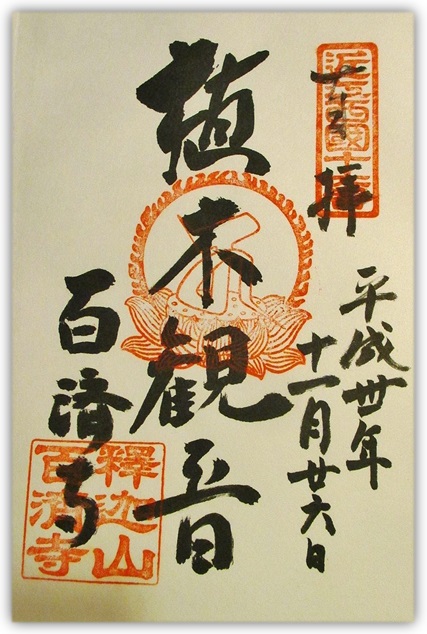 奉拝
近江西國
平成卅年
十一月廿六日
植木観音
百済寺
釋迦山
百濟寺